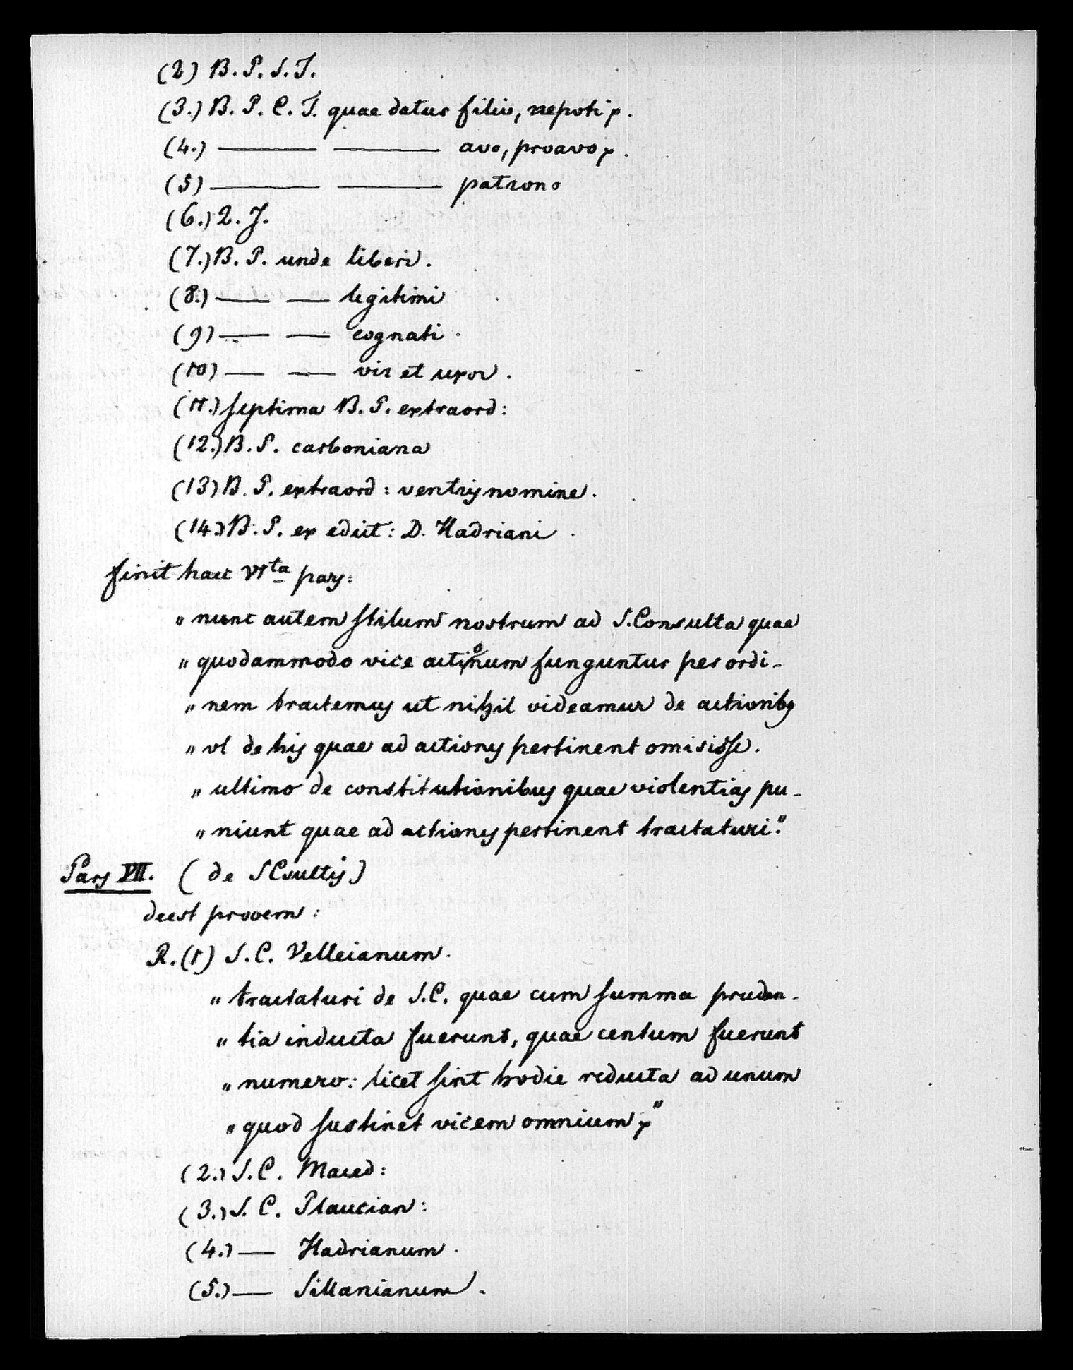 (2) B. P. S. T.
(3.) B. P. C. T. quae datur filio, nepoti p.
(4.) —— —— avo, proavo p.
(5) —— —— patrono
(6.) Q. J.
(7.) B. P. unde liberi.
(8.) — — legitimi
(9) — — cognati.
(10) — — vir et uxor.
(11.) septima B. P. extraord:
(12.) B. P. carboniana
(13) B. P. extraord: ventris nomine.
(14) B. P. ex edict: D. Hadriani.
finit haec VIta pars:
„ nunc autem stilum nostrum ad S.Consulta quae
„ quodammodo vice actionum funguntur per ordi-
„ nem tractemus ut nihil videamur de actionibs
„ vl de his quae ad actiones pertinent omisisse.
„ ultimo de constitutionibus quae violentias pu-
„ niunt quae ad actiones pertinent tractaturi."
Pars VII. (de SCsultis)
deest prooem:
R. (1) S. C. Velleianum.
„ tractaturi de S.C. quae cum summa pruden-
„ tia inducta fuerunt, quae centum fuerunt
„ numero: licet sint hodie reducta ad unum
„ quod sustinet vicem omnium p"
(2.) S. C. Maced:
(3.) S. C. Plaucian:
(4.) — Hadrianum.
(5.) — Sillanianum.